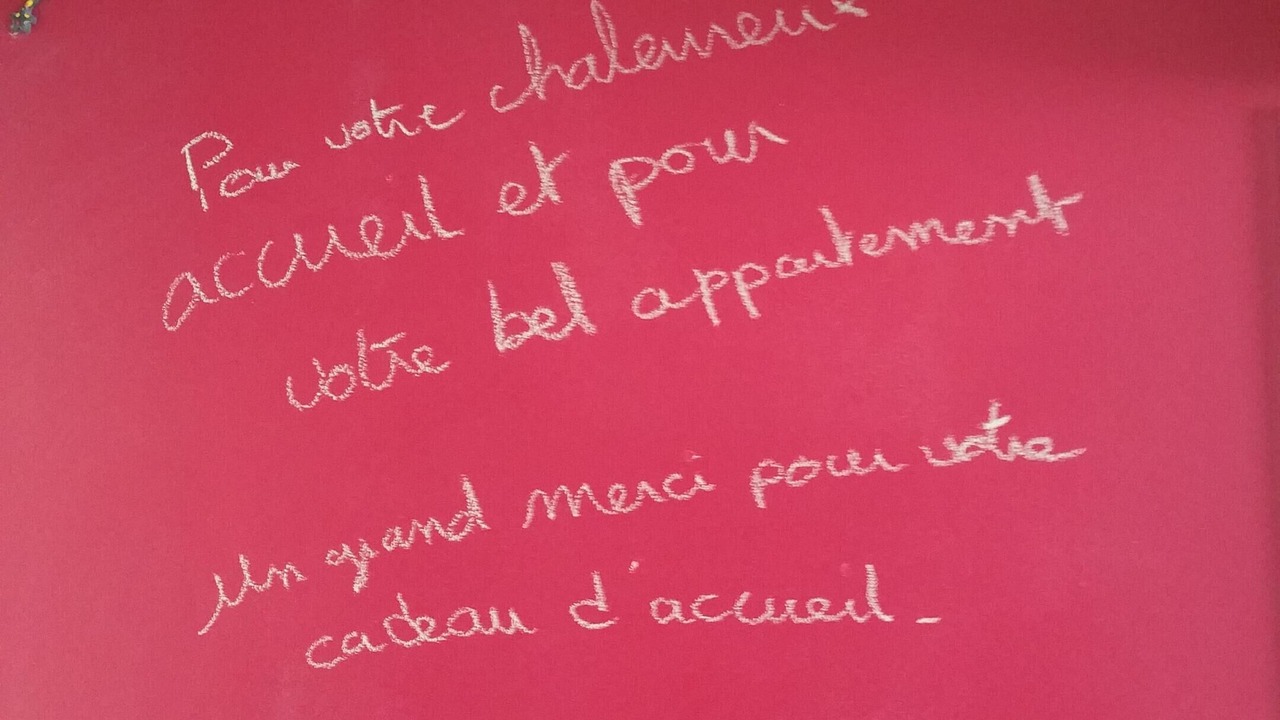 Pour votre chaleureux
accueil et pour
votre bel appartement
Un grand merci pour votre
cadeau d'accueil_